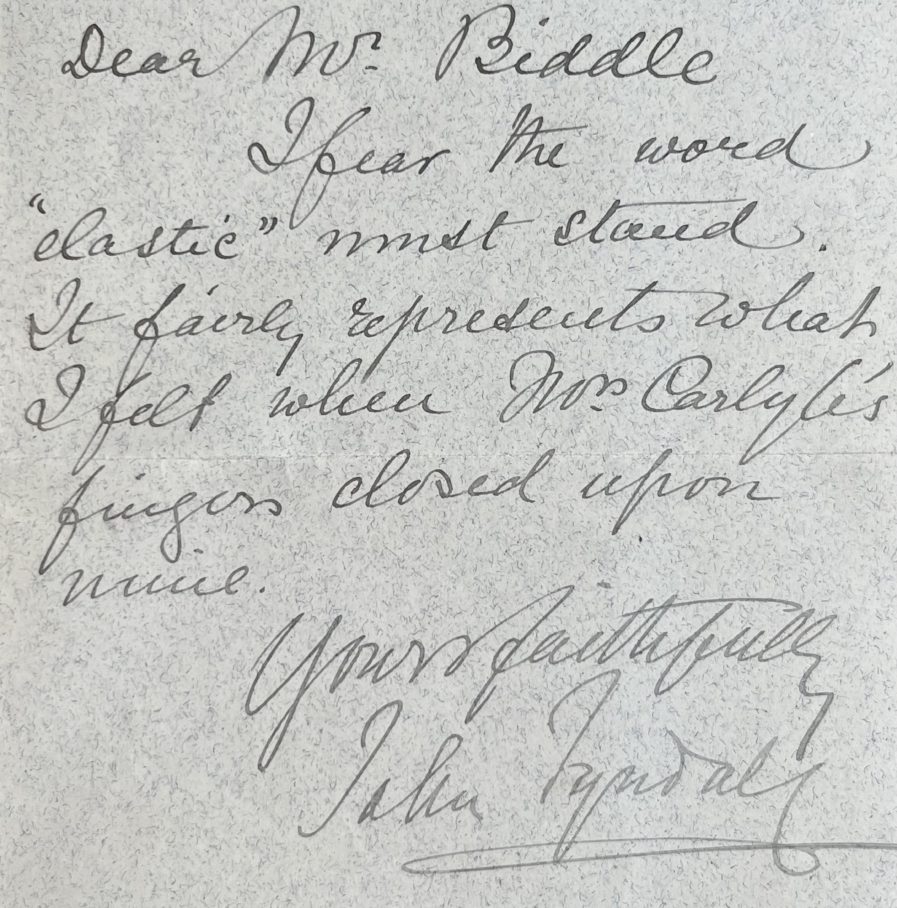 Dear Mr. Biddle
I fear the word
"elastic" must stand.
It fairly represents what
I felt when Mrs Carlyle's
fingers closed upon
mine.
Yours faithfully
John Tyndall